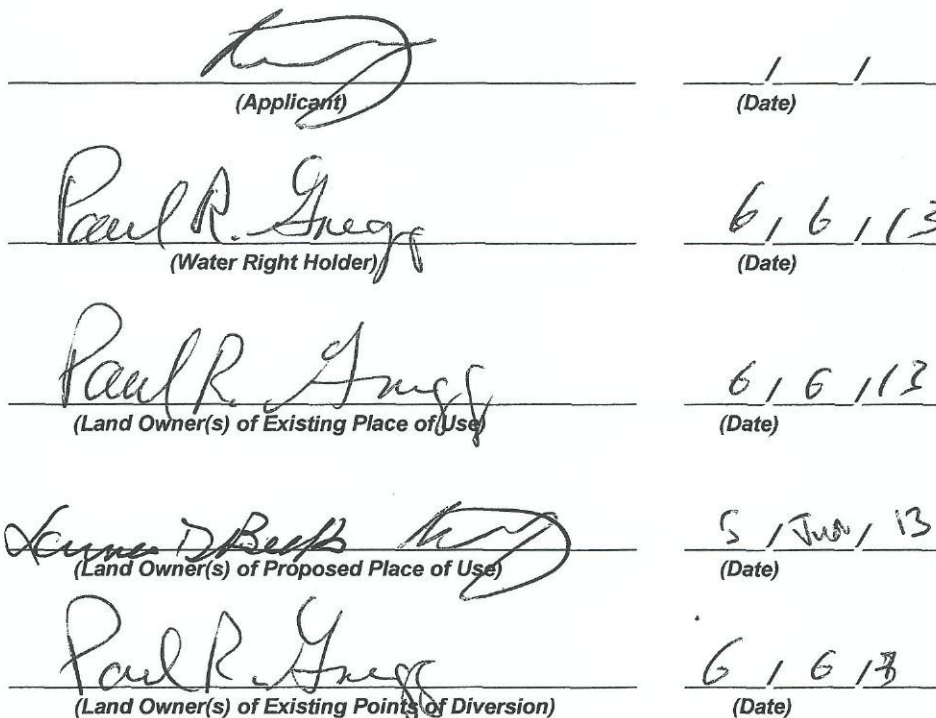 (Applicant) / / (Date)
Paul R. Gregg 6 / 6 / 13
(Water Right Holder) (Date)
Paul R. Gregg 6 / 6 / 13
(Land Owner(s) of Existing Place of Use) (Date)
5 / Jun / 13
(Land Owner(s) of Proposed Place of Use) (Date)
Paul R. Gregg 6 / 6 / 13
(Land Owner(s) of Existing Points of Diversion) (Date)